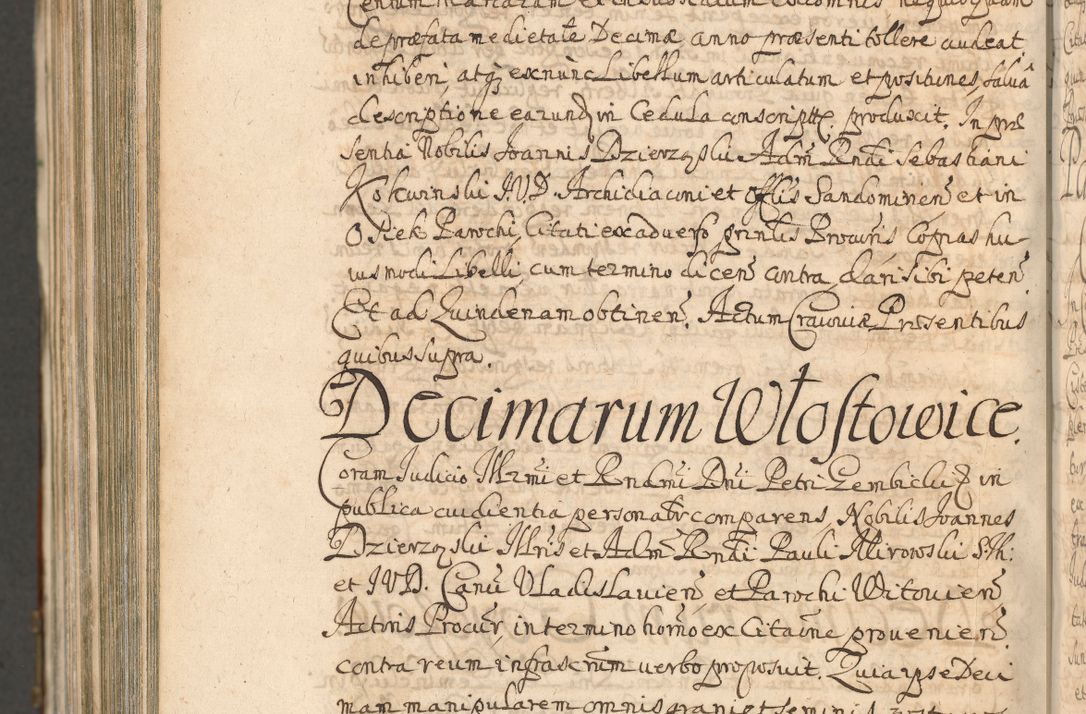 de præfata medietate Decimæ anno præsenti tollere audeat
inhiberi, atq; exnunc Libellum articulatum et positiones, salua
descriptione earund in Cedula conscriptæ, produxit. In præ
sentia Nobilis Joannis Dzierzęski Adm Rndi Sebastiani
Kokwinski J.V.D. Archidiaconi et Offlis Sandomirien et in
Osiek Parochi, Citati ex aduerso prinlis Procuris Copias hu-
iusmodi Libelli, cum termino dicen contra, dari sibi peten.
Et ad Quindenam obtinen. Actum Cracouiæ Præsentibus
quibus supra.
Decimarum Włostowice.
Coram Judicio Illrmi et Rndmi Dni Petri Gembicki in
publica euidientia personalr comparens Nobilis Joannes
Dzierzęski Illris et Adm Rndi Pauli Mirowski S. Th:
et J.V.D. Canci Vladislauien et Parochi Witouien
Actoris Procur, in termino horno ex Citaone prouenien
contra reum infrascrium verbo proposuit. Quia ipse Deci
mam manipularem omnis grani et seminis